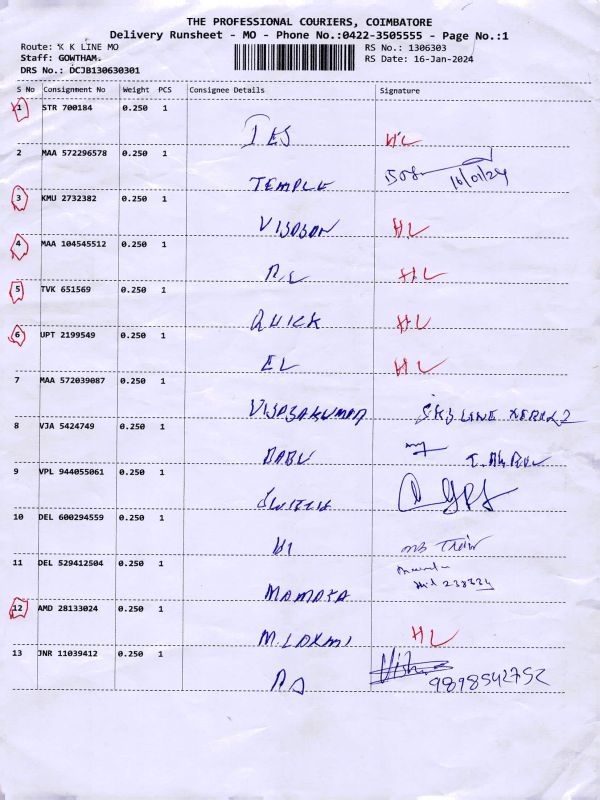 THE PROFESSIONAL COURIERS, COIMBATORE
Delivery Runsheet - MO - Phone No.:0422-3505555 - Page No.:1
Route: K K LINE MO
RS No.: 1306303
Staff: GOWTHAM.
RS Date: 16-Jan-2024
DRS No.: DCJB130630301
S No Consignment No Weight PCS Consignee Details Signature
1 STR 700184 0.250 1
HL
2 MAA 572296578 0.250 1
TEMPLE 16/01/24
3 KMU 2732382 0.250 1
HL
4 MAA 104545512 0.250 1
HL
5 TVK 651569 0.250 1
QUICK HL
6 UPT 2199549 0.250 1
EL HL
7 MAA 572039087 0.250 1
SKYLINE
8 VJA 5424749 0.250 1
BABU
9 VPL 944055061 0.250 1
10 DEL 600294559 0.250 1
11 DEL 529412504 0.250 1
MAMATA
12 AMD 28133024 0.250 1
M. LAXMI HL
13 JNR 11039412 0.250 1
9898542752